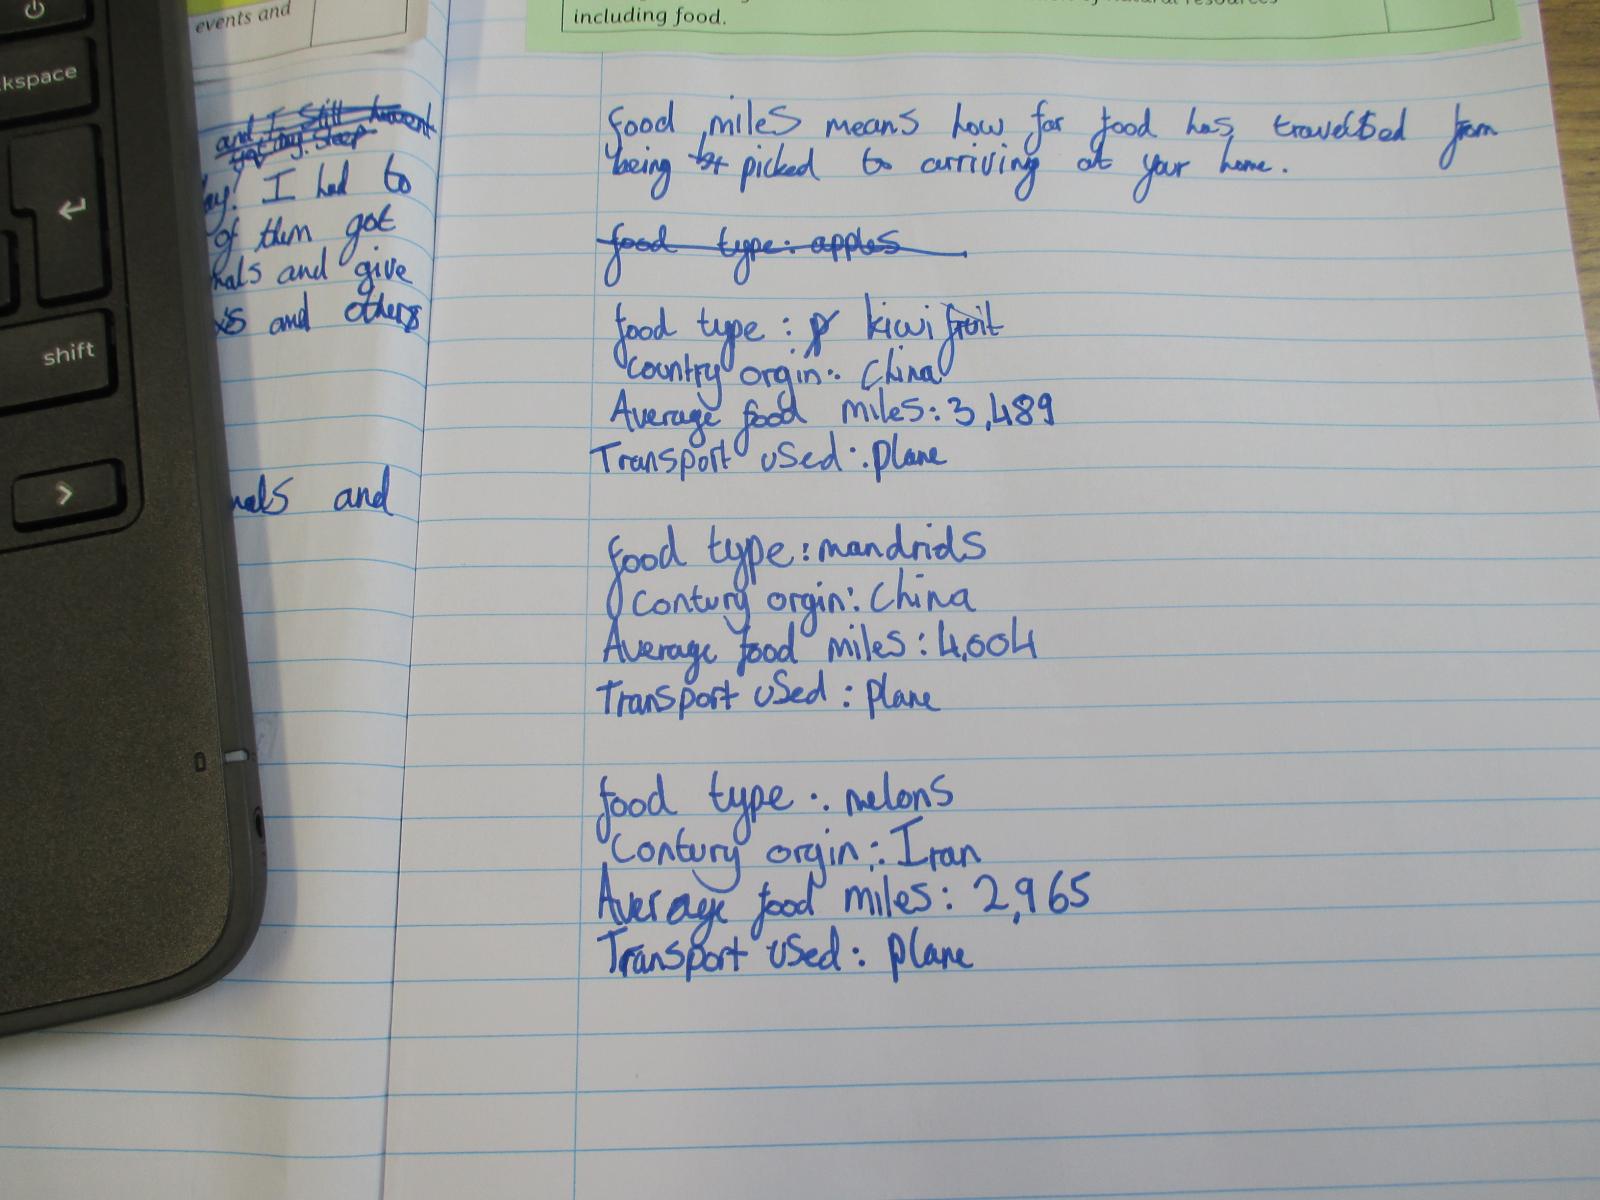 events and
including food.
kspace
shift
and I still havent
got my sleep
ay! I had to
of them got
nals and give
s and others
nals and
food miles means how far food has travelled from
being picked to arriving at your home.
food type: apples
food type: kiwi fruit
Country orgin: China
Average food miles: 3,489
Transport used: plane
food type: mandrids
Contury orgin: China
Average food miles: 4,004
Transport used: plane
food type: melons
Contury orgin: Iran
Average food miles: 2,965
Transport used: plane